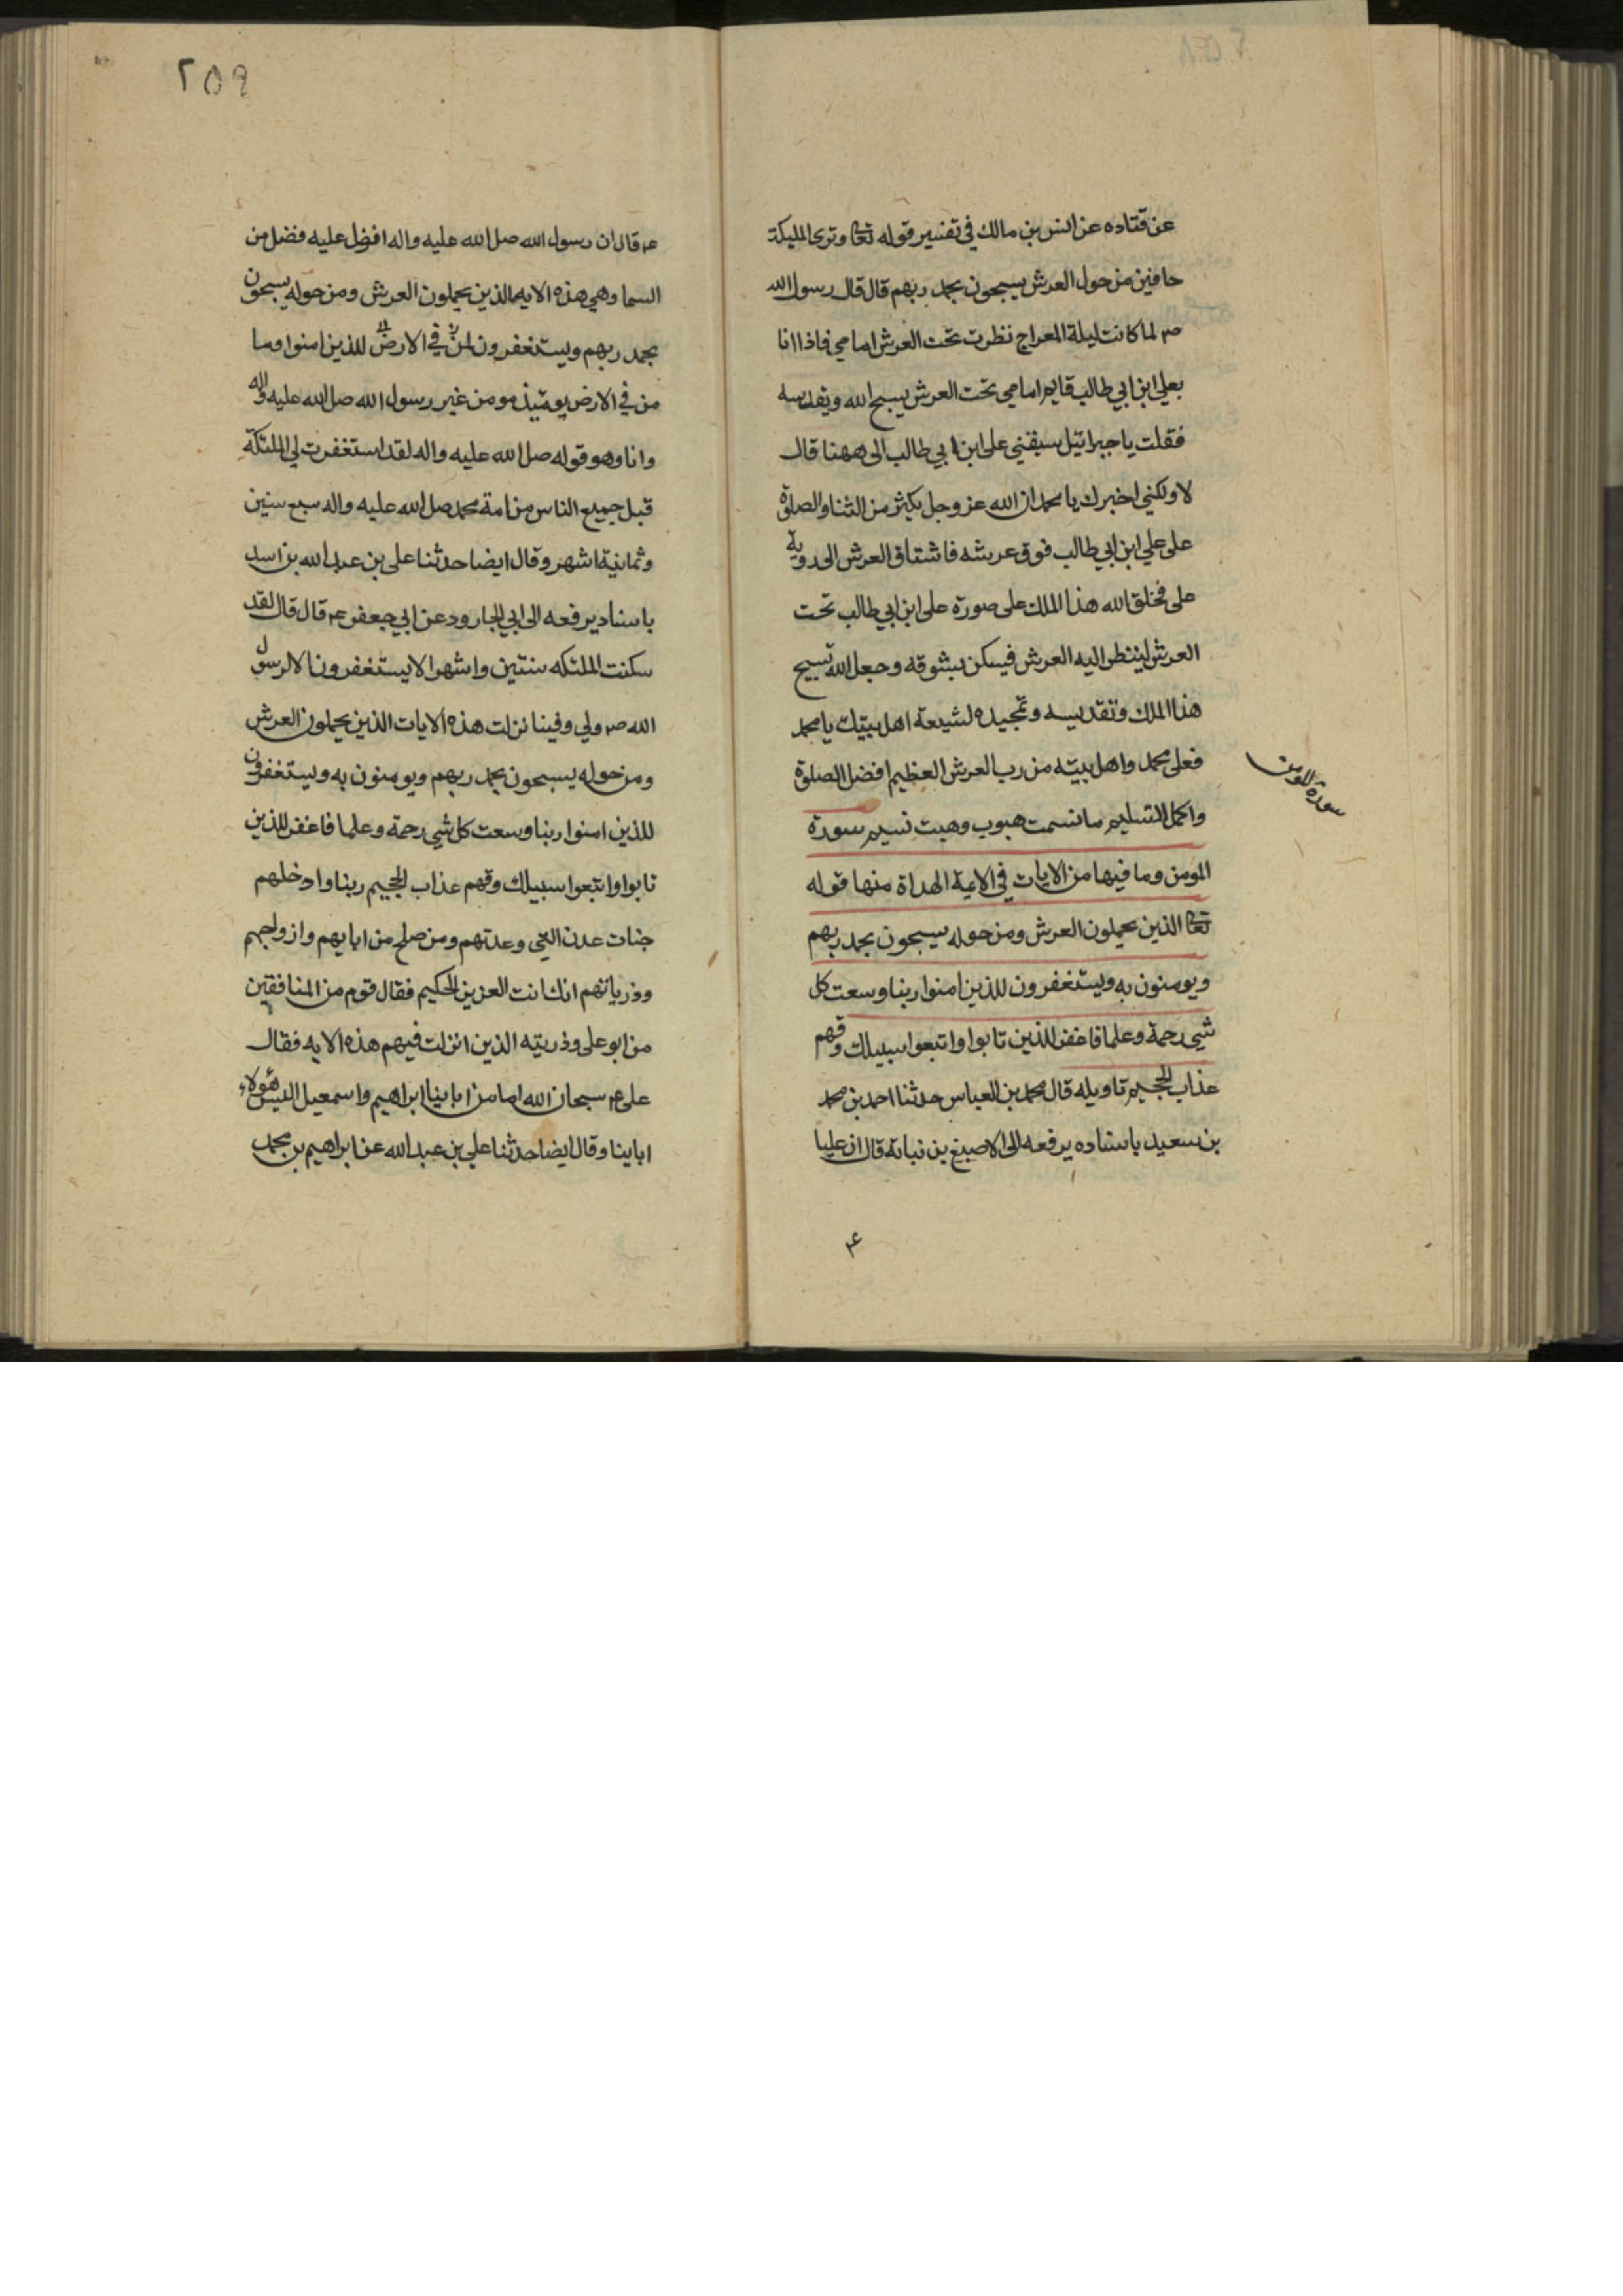 عن قتاده عن انس بن مالك في تفسير قوله تعا وترى المليكة
حافين من حول العرش يسبحون بحمد ربهم قال قال رسول الله
صم لما كانت ليلة المعراج نظرت تحت العرش امامي فاذا انا
بعلي ابن ابي طالب قايم امامي تحت العرش يسبح الله ويقدسه
فقلت يا جبرائيل سبقني على ابن ابي طالب الى ههنا قال
لا ولكني اخبرك يا محمد ان الله عز وجل يكثر من الثنا والصلوة
على علي ابن ابي طالب فوق عرشه فاشتاق العرش الى روية
على فخلق الله هذا الملك على صورة على ابن ابي طالب تحت
العرش لينظر اليه العرش فيسكن بشوقه وجعل الله تسبيح
هذا الملك وتقديسه وتمجيده لشيعة اهل بيتك يا محمد
فعلى محمد واهل بيته من رب العرش العظيم افضل الصلوة
واكمل التسليم ما نسمت هبوب وهبت نسيم سورة
المومن وما فيها من الايات في الايمة الهداة منها قوله
تعا الذين يحملون العرش ومن حوله يسبحون بحمد ربهم
ويومنون به ويستغفرون للذين امنوا ربنا وسعت كل
شي رحمة وعلما فاغفر للذين تابوا واتبعوا سبيلك وقهم
عذاب الجحيم تاويله قال محمد بن العباس حدثنا احمد بن محمد
بن سعيد باسناده يرفعه الى الاصبغ بن نباتة قال ان عليا
سورة المومن
٢٥٩
عم قال ان رسول الله صل الله عليه واله افضل عليه فضل من
السما وهي هذه الايه الذين يحملون العرش ومن حوله يسبحون
بحمد ربهم ويستغفرون لمن في الارض للذين امنوا وما
من في الارض يومئيذ مومن غير رسول الله صل الله عليه واله
وانا وهو قوله صل الله عليه واله لقد استغفرت لي الملئكة
قبل جميع الناس من امة محمد صل الله عليه واله سبع سنين
وثمانية اشهر وقال ايضا حدثنا على بن عبد الله بن اسد
باسناد يرفعه الى ابي الجارود عن ابي جعفر عم قال قال لقد
سكنت الملئكه سنتين واشهرا لا يستغفرون الا لرسول
الله صم ولي وفينا نزلت هذه الايات الذين يحملون العرش
ومن حوله يسبحون بحمد ربهم ويومنون به ويستغفرون
للذين امنوا ربنا وسعت كل شي رحمة وعلما فاغفر للذين
تابوا واتبعوا سبيلك وقهم عذاب الجحيم ربنا وادخلهم
جنات عدن التي وعدتهم ومن صلح من ابايهم وازواجهم
وذرياتهم انك انت العزيز الحكيم فقال قوم من المنافقين
من ابو على وذريته الذين انزلت فيهم هذه الايه فقال
على عم سبحان الله اما من ابائنا ابراهيم واسمعيل اليس هولاء
اباينا وقال ايضا حدثنا علي بن عبد الله عن ابراهيم بن محمد